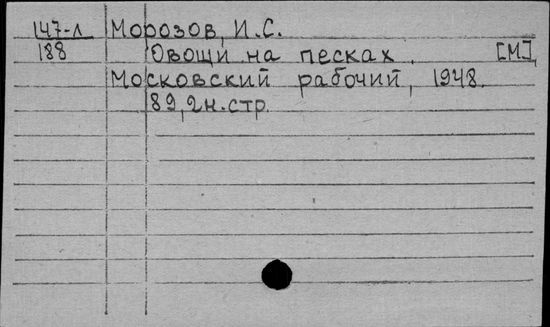 147-л Морозов, И.С.
188 Овощи на песках. [М],
Московский рабочий, 1948.
89, 2н.стр.